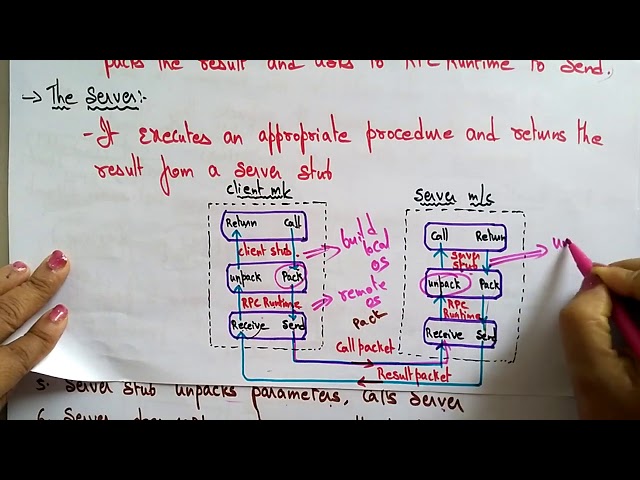 packs the result and asks to RPC Runtime to send.
→ The Server:-
- It executes an appropriate procedure and returns the
result from a server stub
client m/c
Return Call
client stub
unpack Pack
RPC Runtime
Receive Send
build
local
os
remote
os
pack
Call packet
Result packet
server m/s
Call Return
stub
unpack Pack
RPC
Runtime
Receive Send
un
5. Server stub unpacks parameters, calls server
6. Server